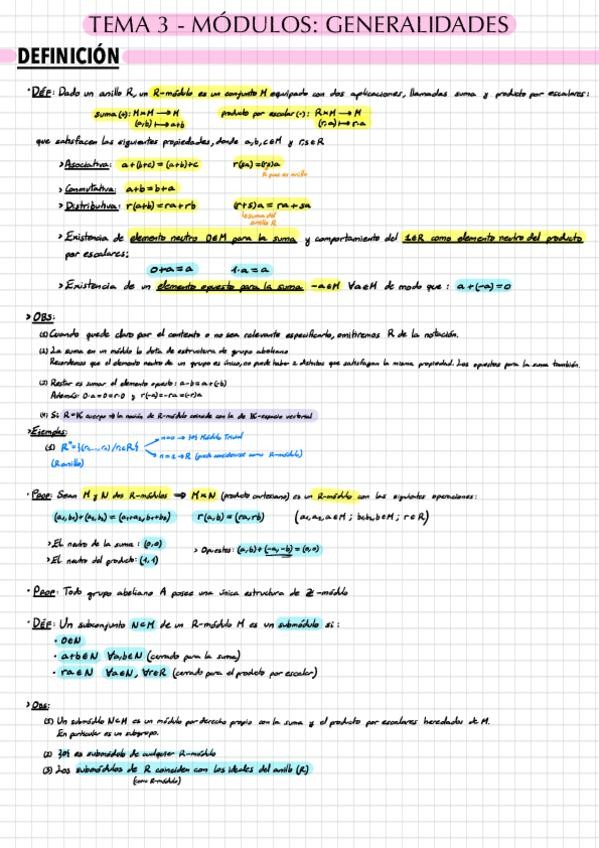 TEMA 3 - MÓDULOS: GENERALIDADES
DEFINICIÓN
· DÉF: Dado un anillo R, un R-módulo es un conjunto M equipado con dos aplicaciones, llamadas suma y producto por escalares:
suma (+): M×M → M producto por escalar (·): R×M → M
(a,b) ↦ a+b (r,a) ↦ r·a
que satisfacen las siguientes propiedades, donde a,b,c∈M y r,s∈R
> Asociativa: a+(b+c) = (a+b)+c r(sa)=(rs)a
R que es anillo
> Conmutativa: a+b=b+a
> Distributiva: r(a+b)=ra+rb (r+s)a = ra+sa
suma del
anillo R
> Existencia de elemento neutro 0∈M para la suma y comportamiento del 1∈R como elemento neutro del producto
por escalares:
0+a=a 1·a=a
> Existencia de un elemento opuesto para la suma -a∈M ∀a∈M de modo que: a+(-a)=0
> OBS:
(1) Cuando quede claro por el contexto o no sea relevante especificarlo, omitiremos R de la notación.
(2) La suma en un módulo lo dota de estructura de grupo abeliano
Recordemos que el elemento neutro de un grupo es único, no puede haber 2 distintos que satisfagan la misma propiedad. Los opuestos para la suma también.
(3) Restar es sumar el elemento opuesto: a-b=a+(-b)
Además: 0·a=0=r·0 y r(-a)=-ra=(-r)a
(4) Si R=K cuerpo ⇒ la noción de R-módulo coincide con la de K-espacio vectorial
> Ejemplos:
(1) Rⁿ={(r₁,...,rₙ)/rᵢ∈R} n=0 → {0} Módulo Trivial
(R anillo) n=1 → R (puede considerarse como R-módulo)
· PROP: Sean M y N dos R-módulos ⇒ M×N (producto cartesiano) es un R-módulo con las siguientes operaciones:
(a₁,b₁)+(a₂,b₂) = (a₁+a₂,b₁+b₂) r(a,b)=(ra,rb) (a₁,a₂,a∈M ; b₁,b₂,b∈M ; r∈R)
> El neutro de la suma: (0,0) > Opuestos: (a,b)+(-a,-b)=(0,0)
> El neutro del producto: (1,1)
· PROP: Todo grupo abeliano A posee una única estructura de Z-módulo
· DÉF: Un subconjunto N⊂M de un R-módulo M es un submódulo si:
· 0∈N
· a+b∈N ∀a,b∈N (cerrado para la suma)
· ra∈N ∀a∈N, ∀r∈R (cerrado para el producto por escalar)
> OBS:
(1) Un submódulo N⊂M es un módulo por derecho propio con la suma y el producto por escalares heredados de M.
En particular es un subgrupo.
(2) {0} es submódulo de cualquier R-módulo
(3) Los submódulos de R coinciden con los ideales del anillo (R)
(como R-módulo)